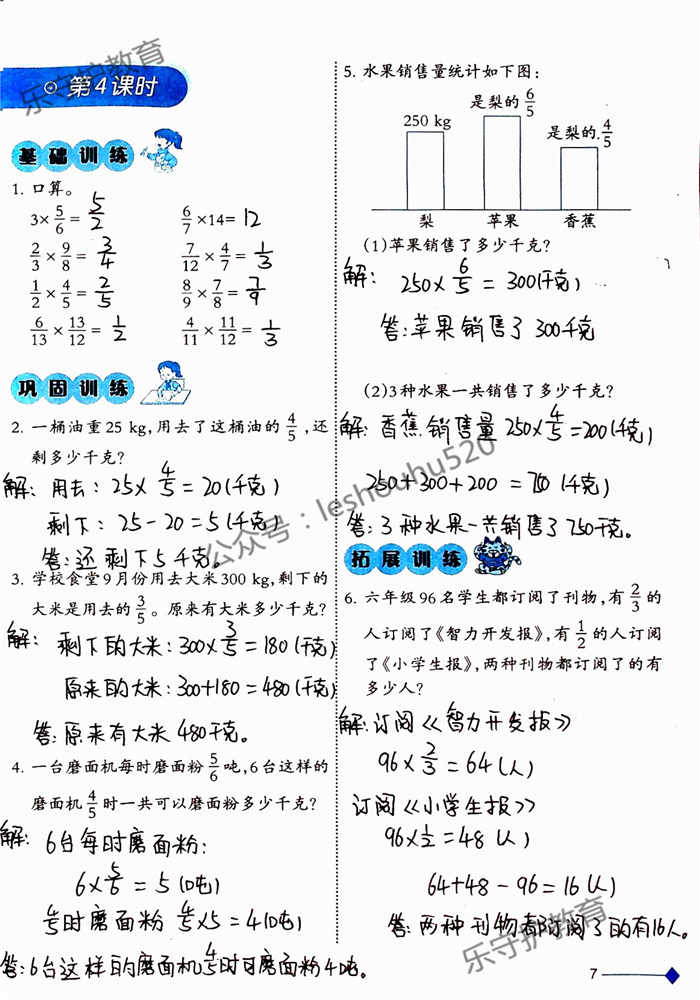 第4课时
基础训练
1. 口算。
3×5/6= 5/2    6/7×14= 12
2/3×9/8= 3/4    7/12×4/7= 1/3
1/2×4/5= 2/5    8/9×7/8= 7/9
6/13×13/12= 1/2    4/11×11/12= 1/3
巩固训练
2. 一桶油重25 kg,用去了这桶油的4/5,还
剩多少千克?
解: 用去: 25×4/5=20(千克)
剩下: 25-20=5(千克)
答: 还剩下5千克。
3. 学校食堂9月份用去大米300 kg,剩下的
大米是用去的3/5。原来有大米多少千克?
解: 剩下的大米: 300×3/5=180(千克)
原来的大米: 300+180=480(千克)
答: 原来有大米480千克。
4. 一台磨面机每时磨面粉5/6吨,6台这样的
磨面机4/5时一共可以磨面粉多少千克?
解: 6台每时磨面粉:
6×5/6=5(吨)
4/5时磨面粉 4/5×5=4(吨)
答: 6台这样的磨面机4/5时可磨面粉4吨。
5. 水果销售量统计如下图:
250 kg
是梨的6/5
是梨的4/5
梨 苹果 香蕉
(1)苹果销售了多少千克?
解: 250×6/5=300(千克)
答: 苹果销售了300千克
(2)3种水果一共销售了多少千克?
解: 香蕉销售量250×4/5=200(千克)
250+300+200=750(千克)
答: 3种水果一共销售了750千克。
拓展训练
6. 六年级96名学生都订阅了刊物,有2/3的
人订阅了《智力开发报》,有1/2的人订阅
了《小学生报》,两种刊物都订阅了的有
多少人?
解: 订阅《智力开发报》
96×2/3=64(人)
订阅《小学生报》
96×1/2=48(人)
64+48-96=16(人)
答: 两种刊物都订阅了的有16人。
7
乐守护教育
公众号:leshouhu520
乐守护教育